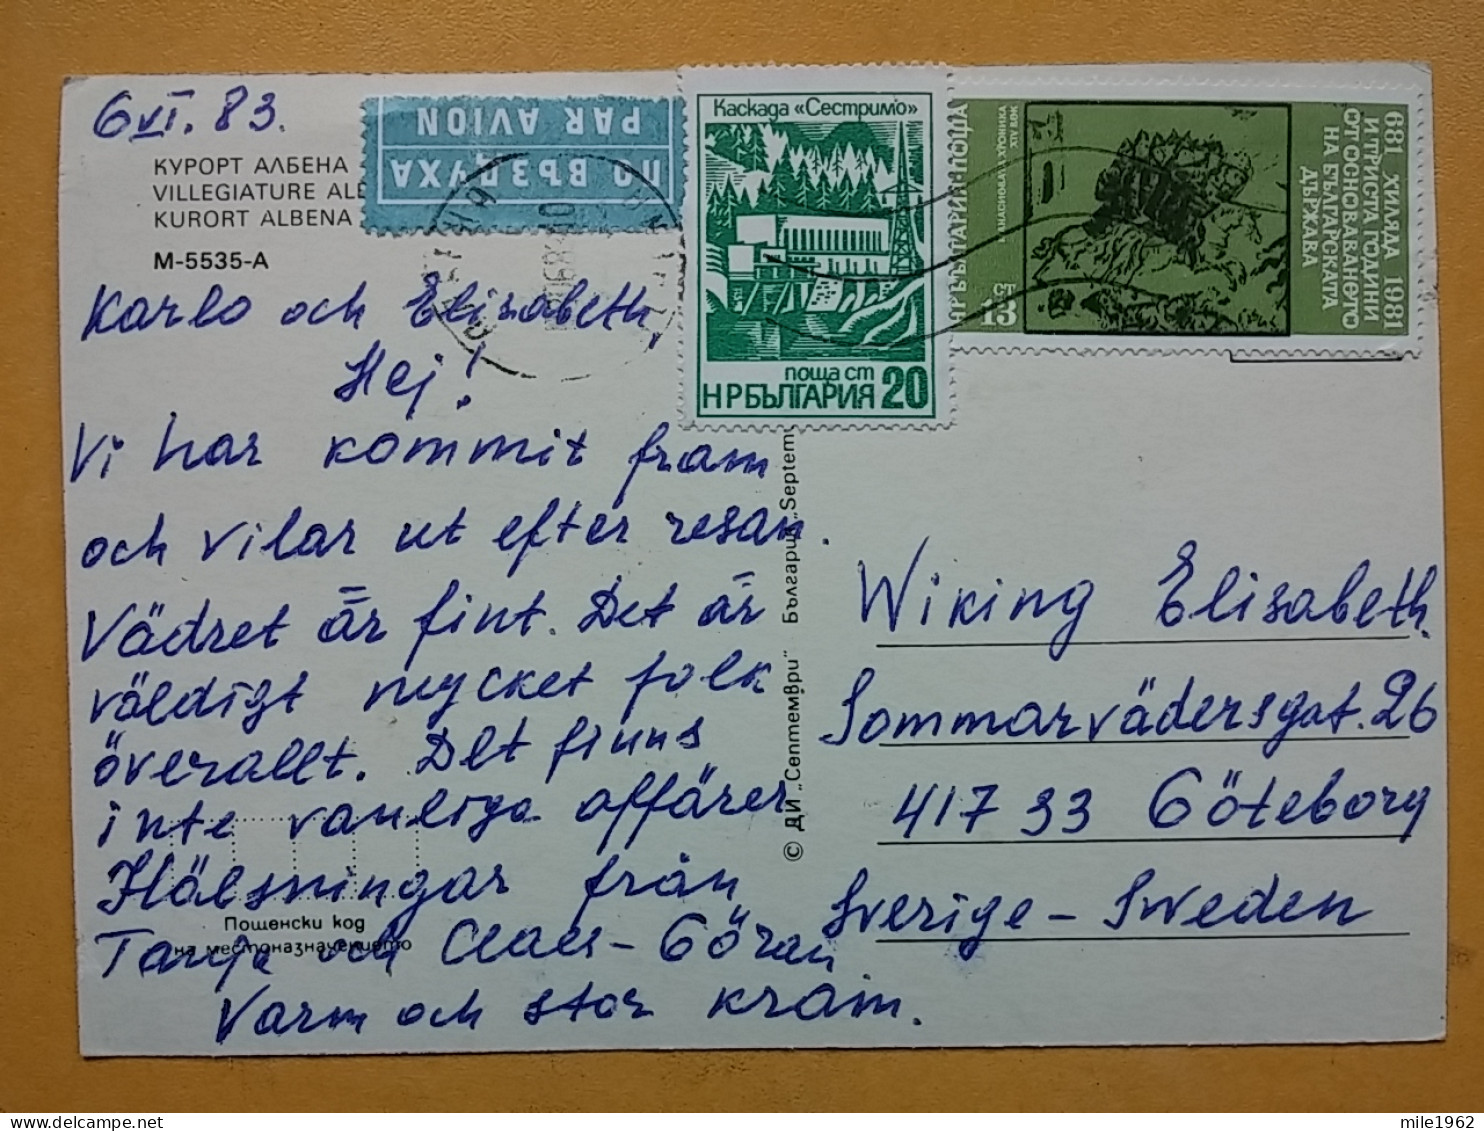 6 VI. 83.
КУРОРТ АЛБЕНА
VILLEGIATURE ALB
KURORT ALBENA
М-5535-А
PAR AVION
ПО ВЪЗДУХА
Каскада «Сестримо»
поща ст
НРБЪЛГАРИЯ 20
681 ХИЛЯДА 1981
И ТРИСТА ГОДИНИ
ОТ ОСНОВАВАНЕТО
НА БЪЛГАРСКАТА
ДЪРЖАВА
НР БЪЛГАРИЯ·ПОЩА
СТ
13
Karlo och Elisabeth,
Hej!
Vi har kommit fram
och vilar ut efter resan.
Vädret är fint. Det är
väldigt mycket folk
överallt. Det finns
inte vanliga affärer
Hälsningar från
Tanja och Claes-Göran
Varm och stor kram.
Пощенски код
на местоназначението
© ДИ „Септември" България „Septem
Wiking Elisabeth.
Sommarvädersgat. 26
417 33 Göteborg
Sverige - Sweden
mile1962